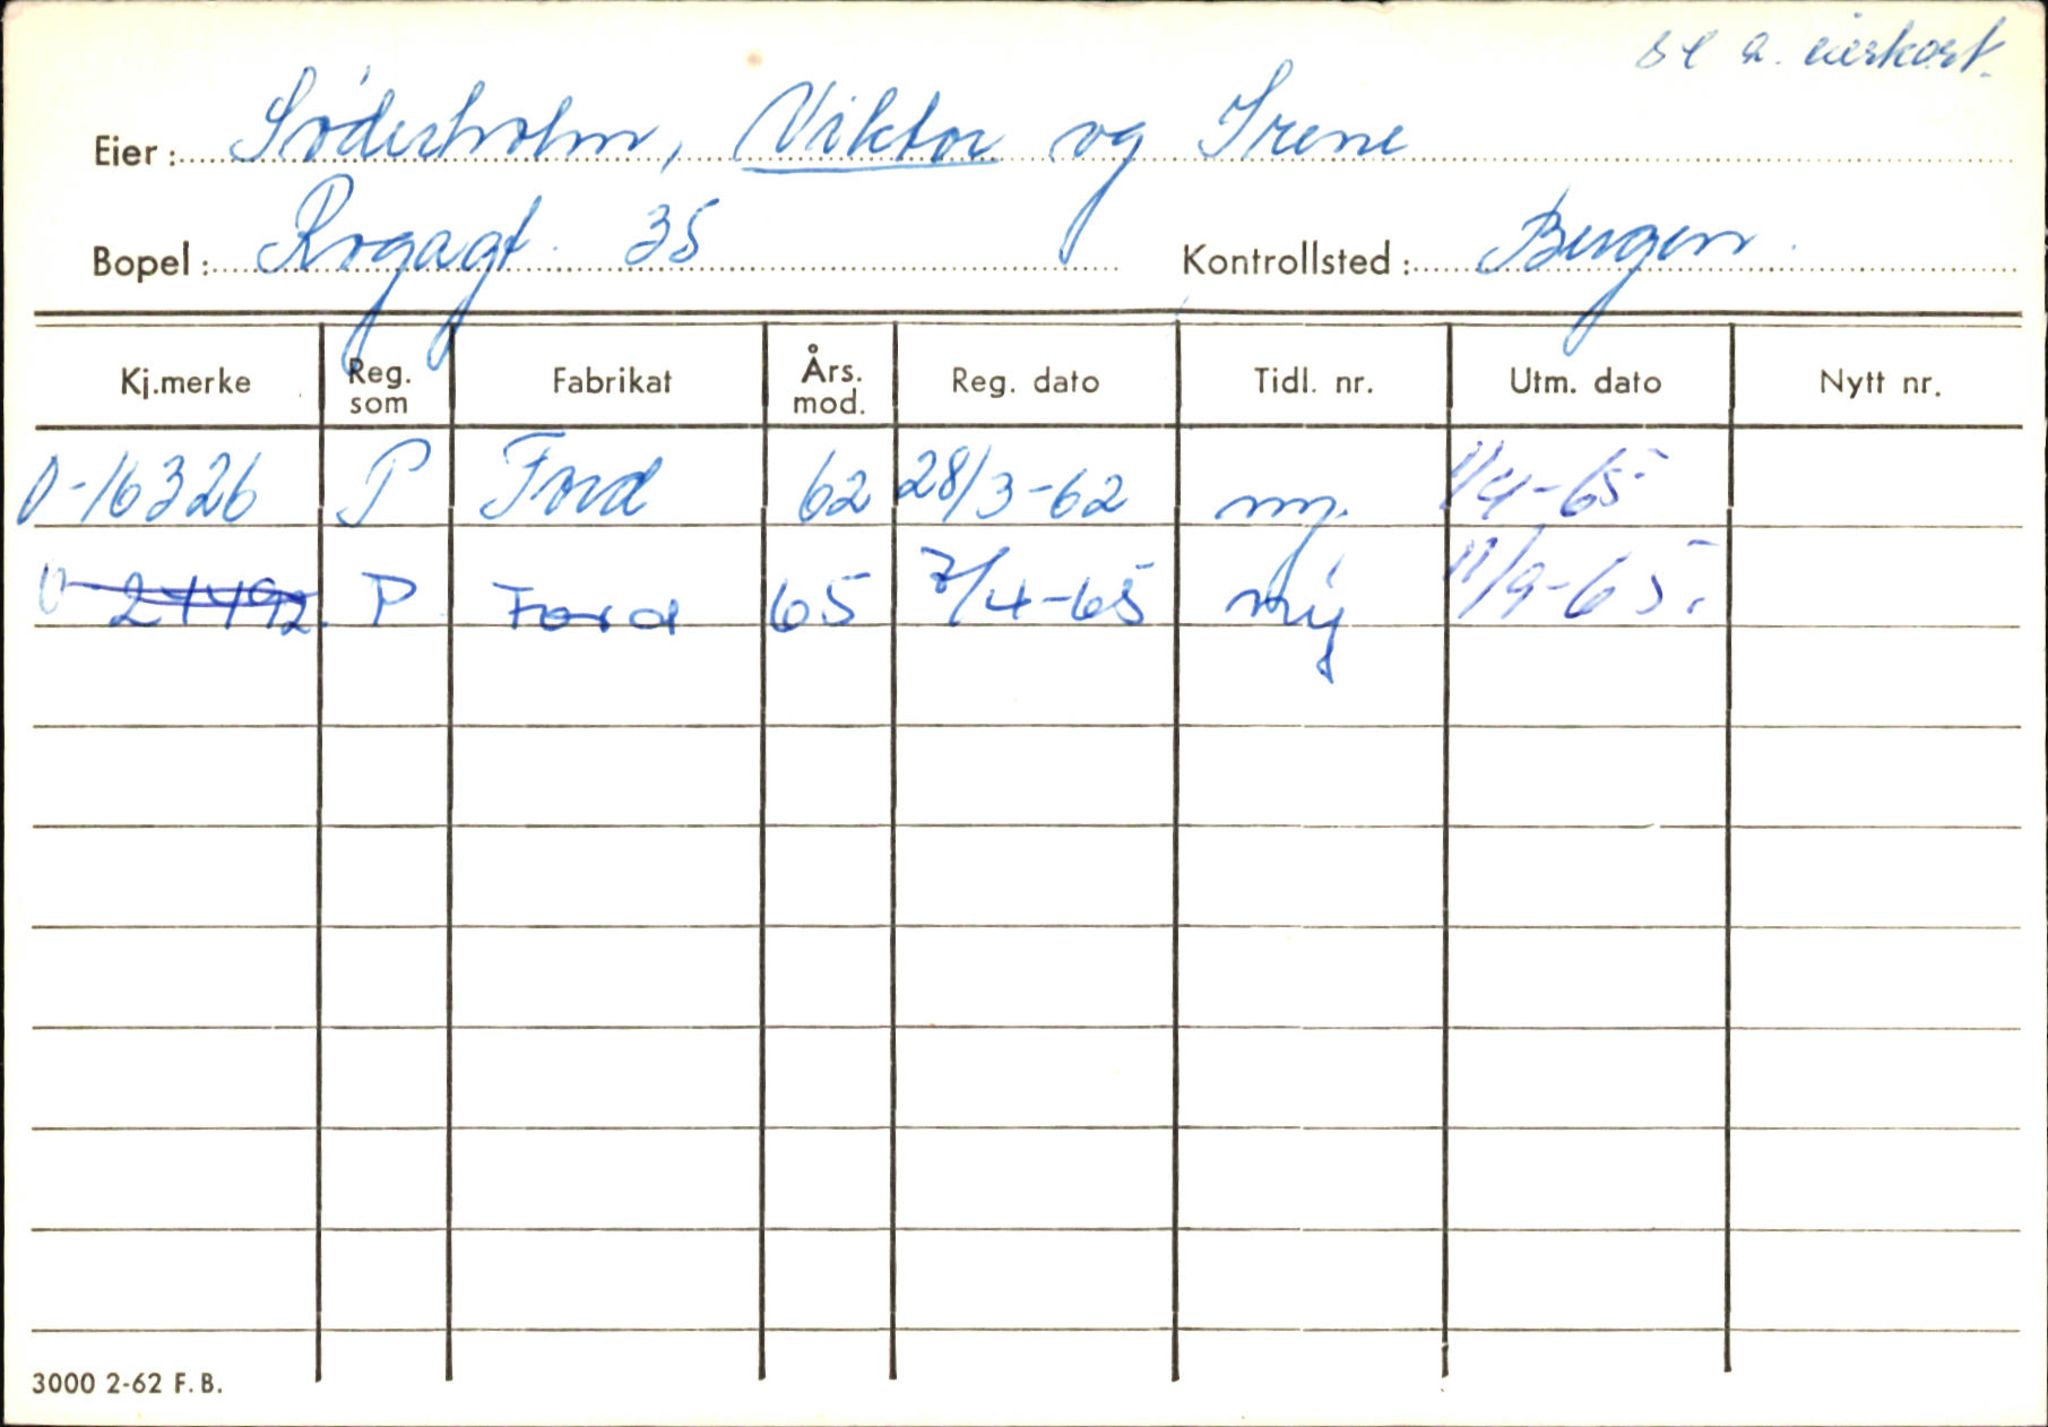 se a. eierkort.
Eier: Söderholm, Viktor og Irene
Bopel: Rogagt. 35 Kontrollsted: Bergen.
Kj.merke Reg. som Fabrikat Års. mod. Reg. dato Tidl. nr. Utm. dato Nytt nr.
O-16326 P Ford 62 28/3-62 ny. 1/4-65
O-21492 P Ford 65 7/4-65 ny 11/9-65.
3000 2-62 F.B.